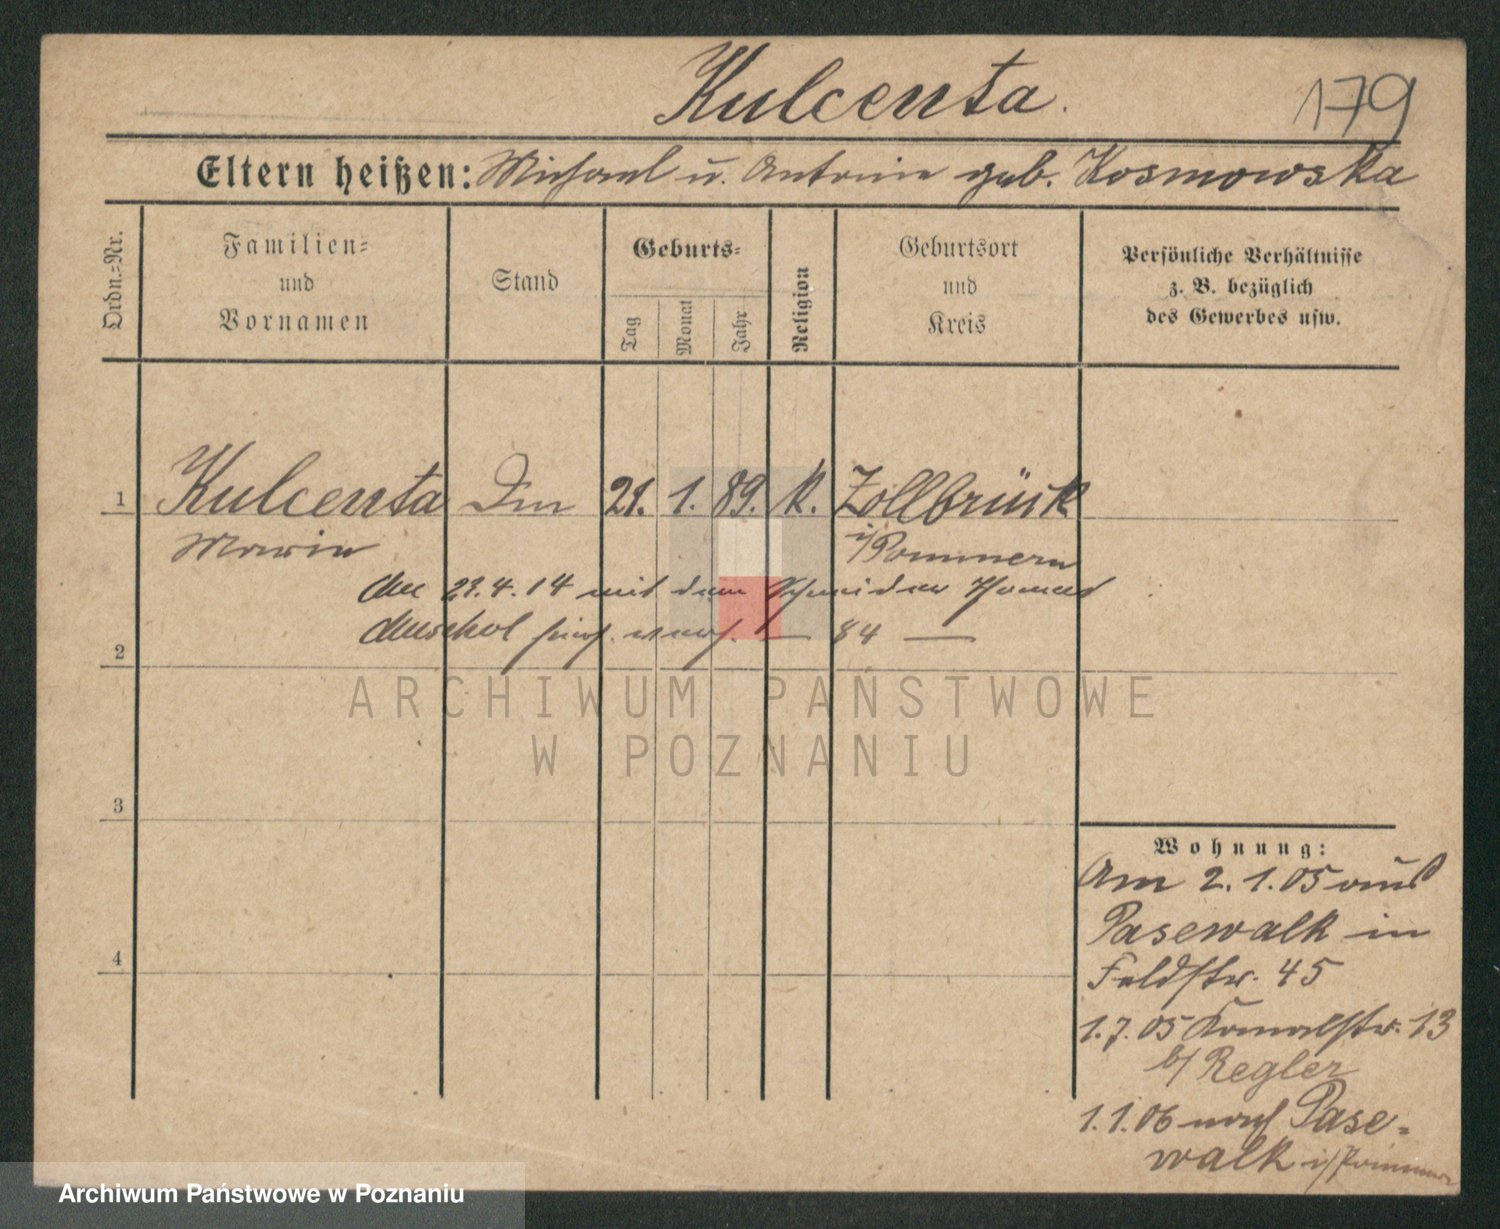 Kulcenta.
179
Eltern heißen: Michael u. Antonie geb. Kosmowska
Ordn.-Nr.
Familien-
und
Vornamen
Stand
Geburts-
Tag
Monat
Jahr
Religion
Geburtsort
und
Kreis
Persönliche Verhältnisse
z. B. bezüglich
des Gewerbes usw.
1
Kulcenta 21. 1. 89. K. Zollbrück
Marie
i/Pommern
23.4.14 mit dem Schneider Thomas
84
2
ARCHIWUM PAŃSTWOWE
W POZNANIU
3
4
Wohnung:
Am 2.1.05 aus
Pasewalk in
Feldstr. 45
1.7.05 Kanalstr. 13
b/ Regler
1.1.06 nach Pase-
walk i/Pommern
Archiwum Państwowe w Poznaniu